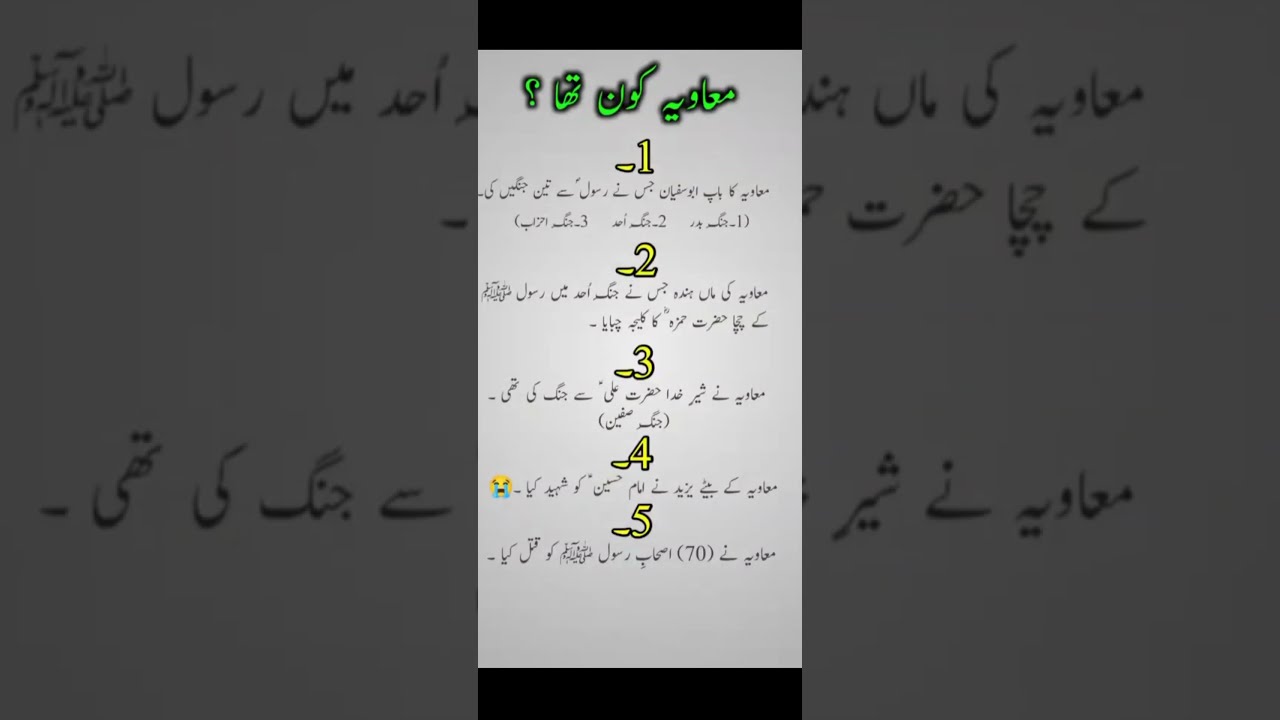 معاویہ کون تھا ؟
1۔
معاویہ کا باپ ابوسفیان جس نے رسولؐ سے تین جنگیں کی۔
(1۔جنگِ بدر 2۔جنگِ اُحد 3۔جنگِ احزاب)
2۔
معاویہ کی ماں ہندہ جس نے جنگِ اُحد میں رسول ﷺ
کے چچا حضرت حمزہؓ کا کلیجہ چبایا ۔
3۔
معاویہ نے شیرِ خدا حضرت علیؑ سے جنگ کی تھی ۔
(جنگِ صفین)
4۔
معاویہ کے بیٹے یزید نے امام حسینؑ کو شہید کیا ۔😭
5۔
معاویہ نے (70) اصحابِ رسول ﷺ کو قتل کیا ۔